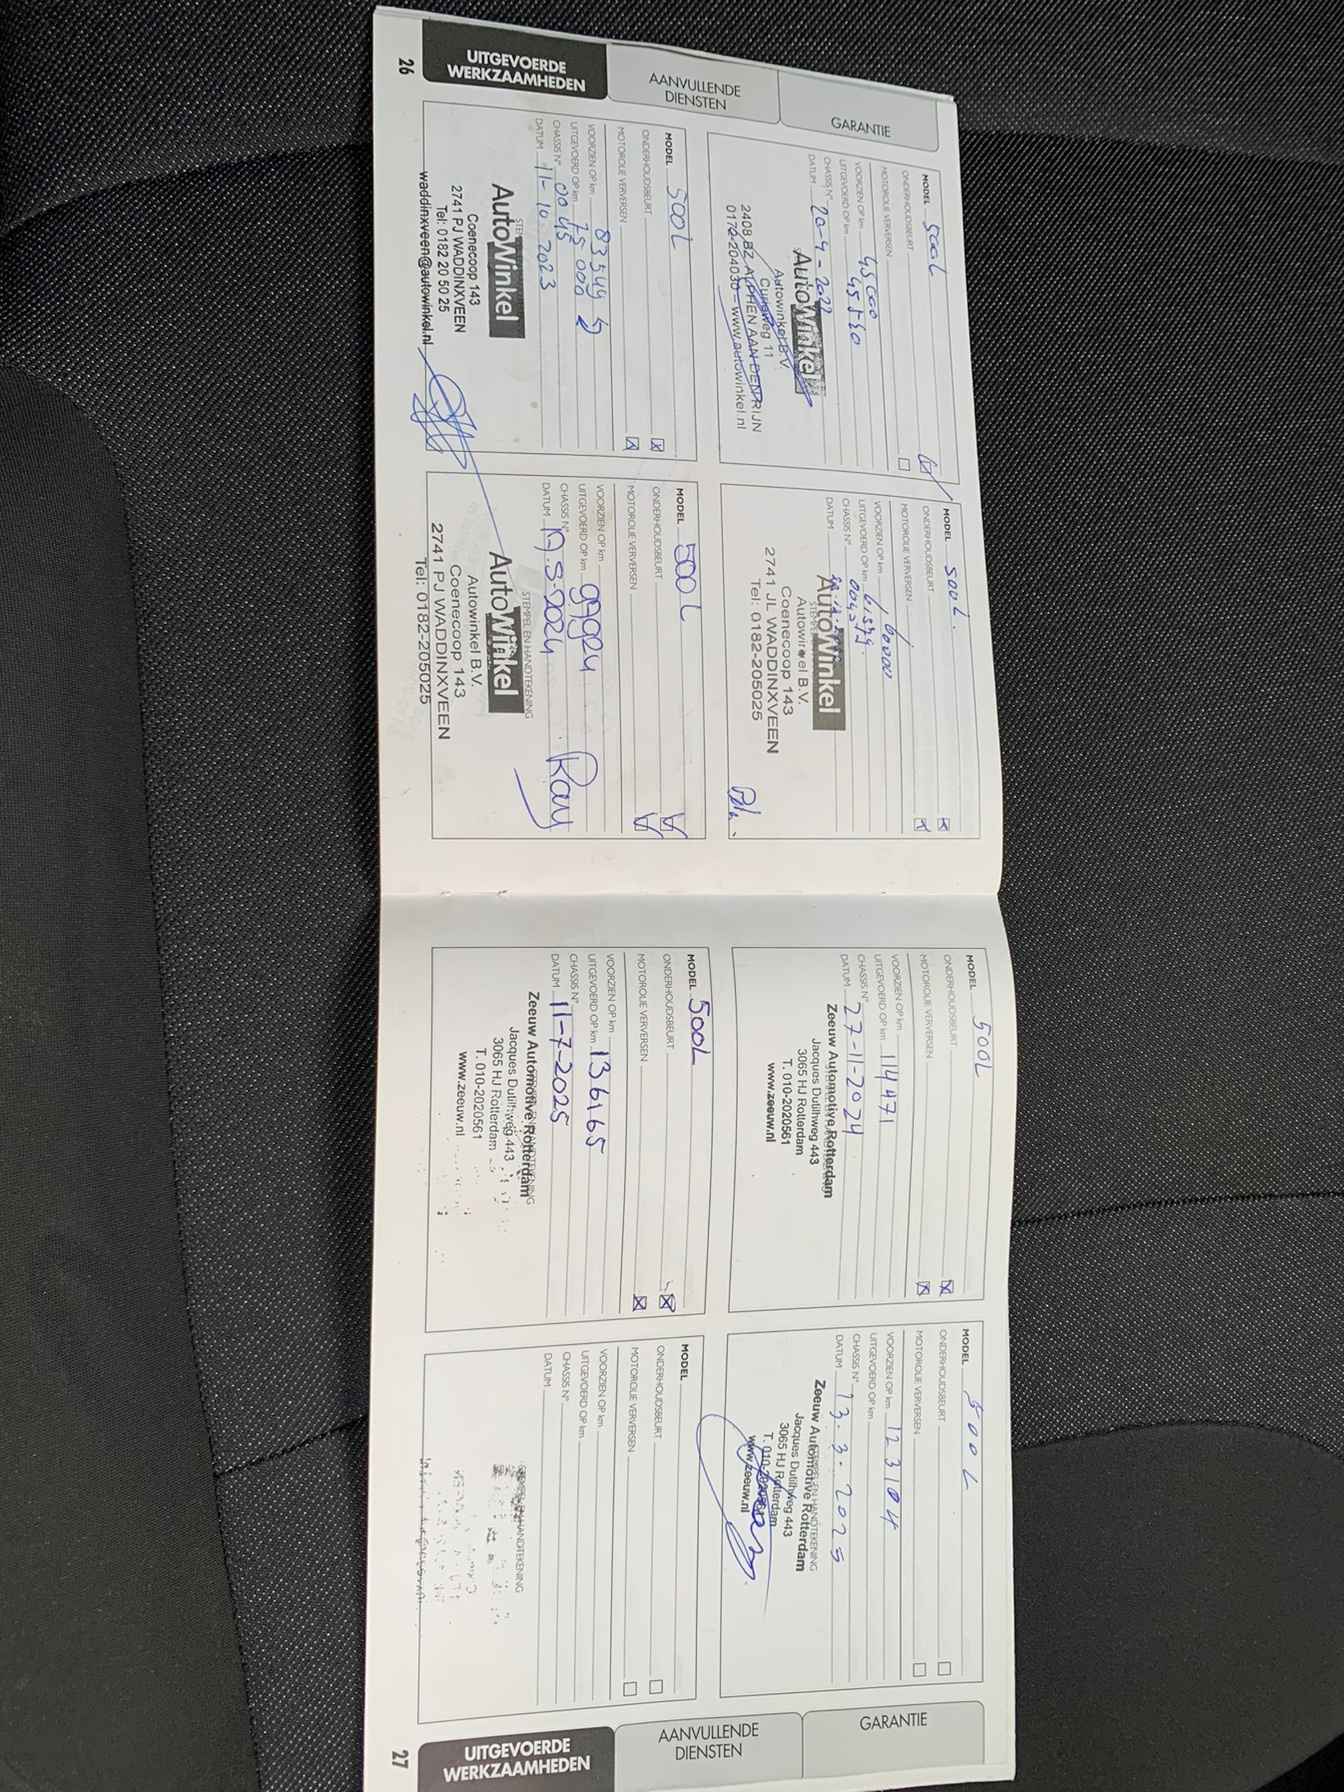 UITGEVOERDE
WERKZAAMHEDEN
AANVULLENDE
DIENSTEN
GARANTIE
26
MODEL 500L
ONDERHOUDSBEURT
MOTOROLIE VERVERSEN
VOORZIEN OP km 45000
UITGEVOERD OP km 45540
CHASSIS N°
DATUM 20-4-2022
AutoWinkel
Autowinkel B.V.
Curieweg 11
2408 BZ ALPHEN AAN DEN RIJN
0172-204030 – www.autowinkel.nl
MODEL 500L.
ONDERHOUDSBEURT
MOTOROLIE VERVERSEN
VOORZIEN OP km 60000
UITGEVOERD OP km 61579.
CHASSIS N°
DATUM
AutoWinkel
Autowinkel B.V.
Coenecoop 143
2741 JL WADDINXVEEN
Tel: 0182-205025
MODEL 500L
ONDERHOUDSBEURT
MOTOROLIE VERVERSEN
VOORZIEN OP km 83549
UITGEVOERD OP km 75 000
CHASSIS N° 0045
DATUM 11-10-2023
AutoWinkel
Coenecoop 143
2741 PJ WADDINXVEEN
Tel: 0182 20 50 25
waddinxveen@autowinkel.nl
MODEL 500L
ONDERHOUDSBEURT
MOTOROLIE VERVERSEN
VOORZIEN OP km
UITGEVOERD OP km 99924
CHASSIS N°
DATUM 19.3-2024
STEMPEL EN HANDTEKENING
Ray
AutoWinkel
Autowinkel B.V.
Coenecoop 143
2741 PJ WADDINXVEEN
Tel: 0182-205025
MODEL 500L
ONDERHOUDSBEURT
MOTOROLIE VERVERSEN
VOORZIEN OP km
UITGEVOERD OP km 114471
CHASSIS N°
DATUM 27-11-2024
Zeeuw Automotive Rotterdam
Jacques Dutilhweg 443
3065 HJ Rotterdam
T. 010-2020561
www.zeeuw.nl
MODEL 500L
ONDERHOUDSBEURT
MOTOROLIE VERVERSEN
VOORZIEN OP km 123104
UITGEVOERD OP km
CHASSIS N°
DATUM 13.3.2025
STEMPEL EN HANDTEKENING
Zeeuw Automotive Rotterdam
Jacques Dutilhweg 443
3065 HJ Rotterdam
T. 010-2020561
www.zeeuw.nl
MODEL 500L
ONDERHOUDSBEURT
MOTOROLIE VERVERSEN
VOORZIEN OP km
UITGEVOERD OP km 136165
CHASSIS N°
DATUM 11-7-2025
Zeeuw Automotive Rotterdam
Jacques Dutilhweg 443
3065 HJ Rotterdam
T. 010-2020561
www.zeeuw.nl
MODEL
ONDERHOUDSBEURT
MOTOROLIE VERVERSEN
VOORZIEN OP km
UITGEVOERD OP km
CHASSIS N°
DATUM
STEMPEL EN HANDTEKENING
UITGEVOERDE
WERKZAAMHEDEN
AANVULLENDE
DIENSTEN
GARANTIE
27